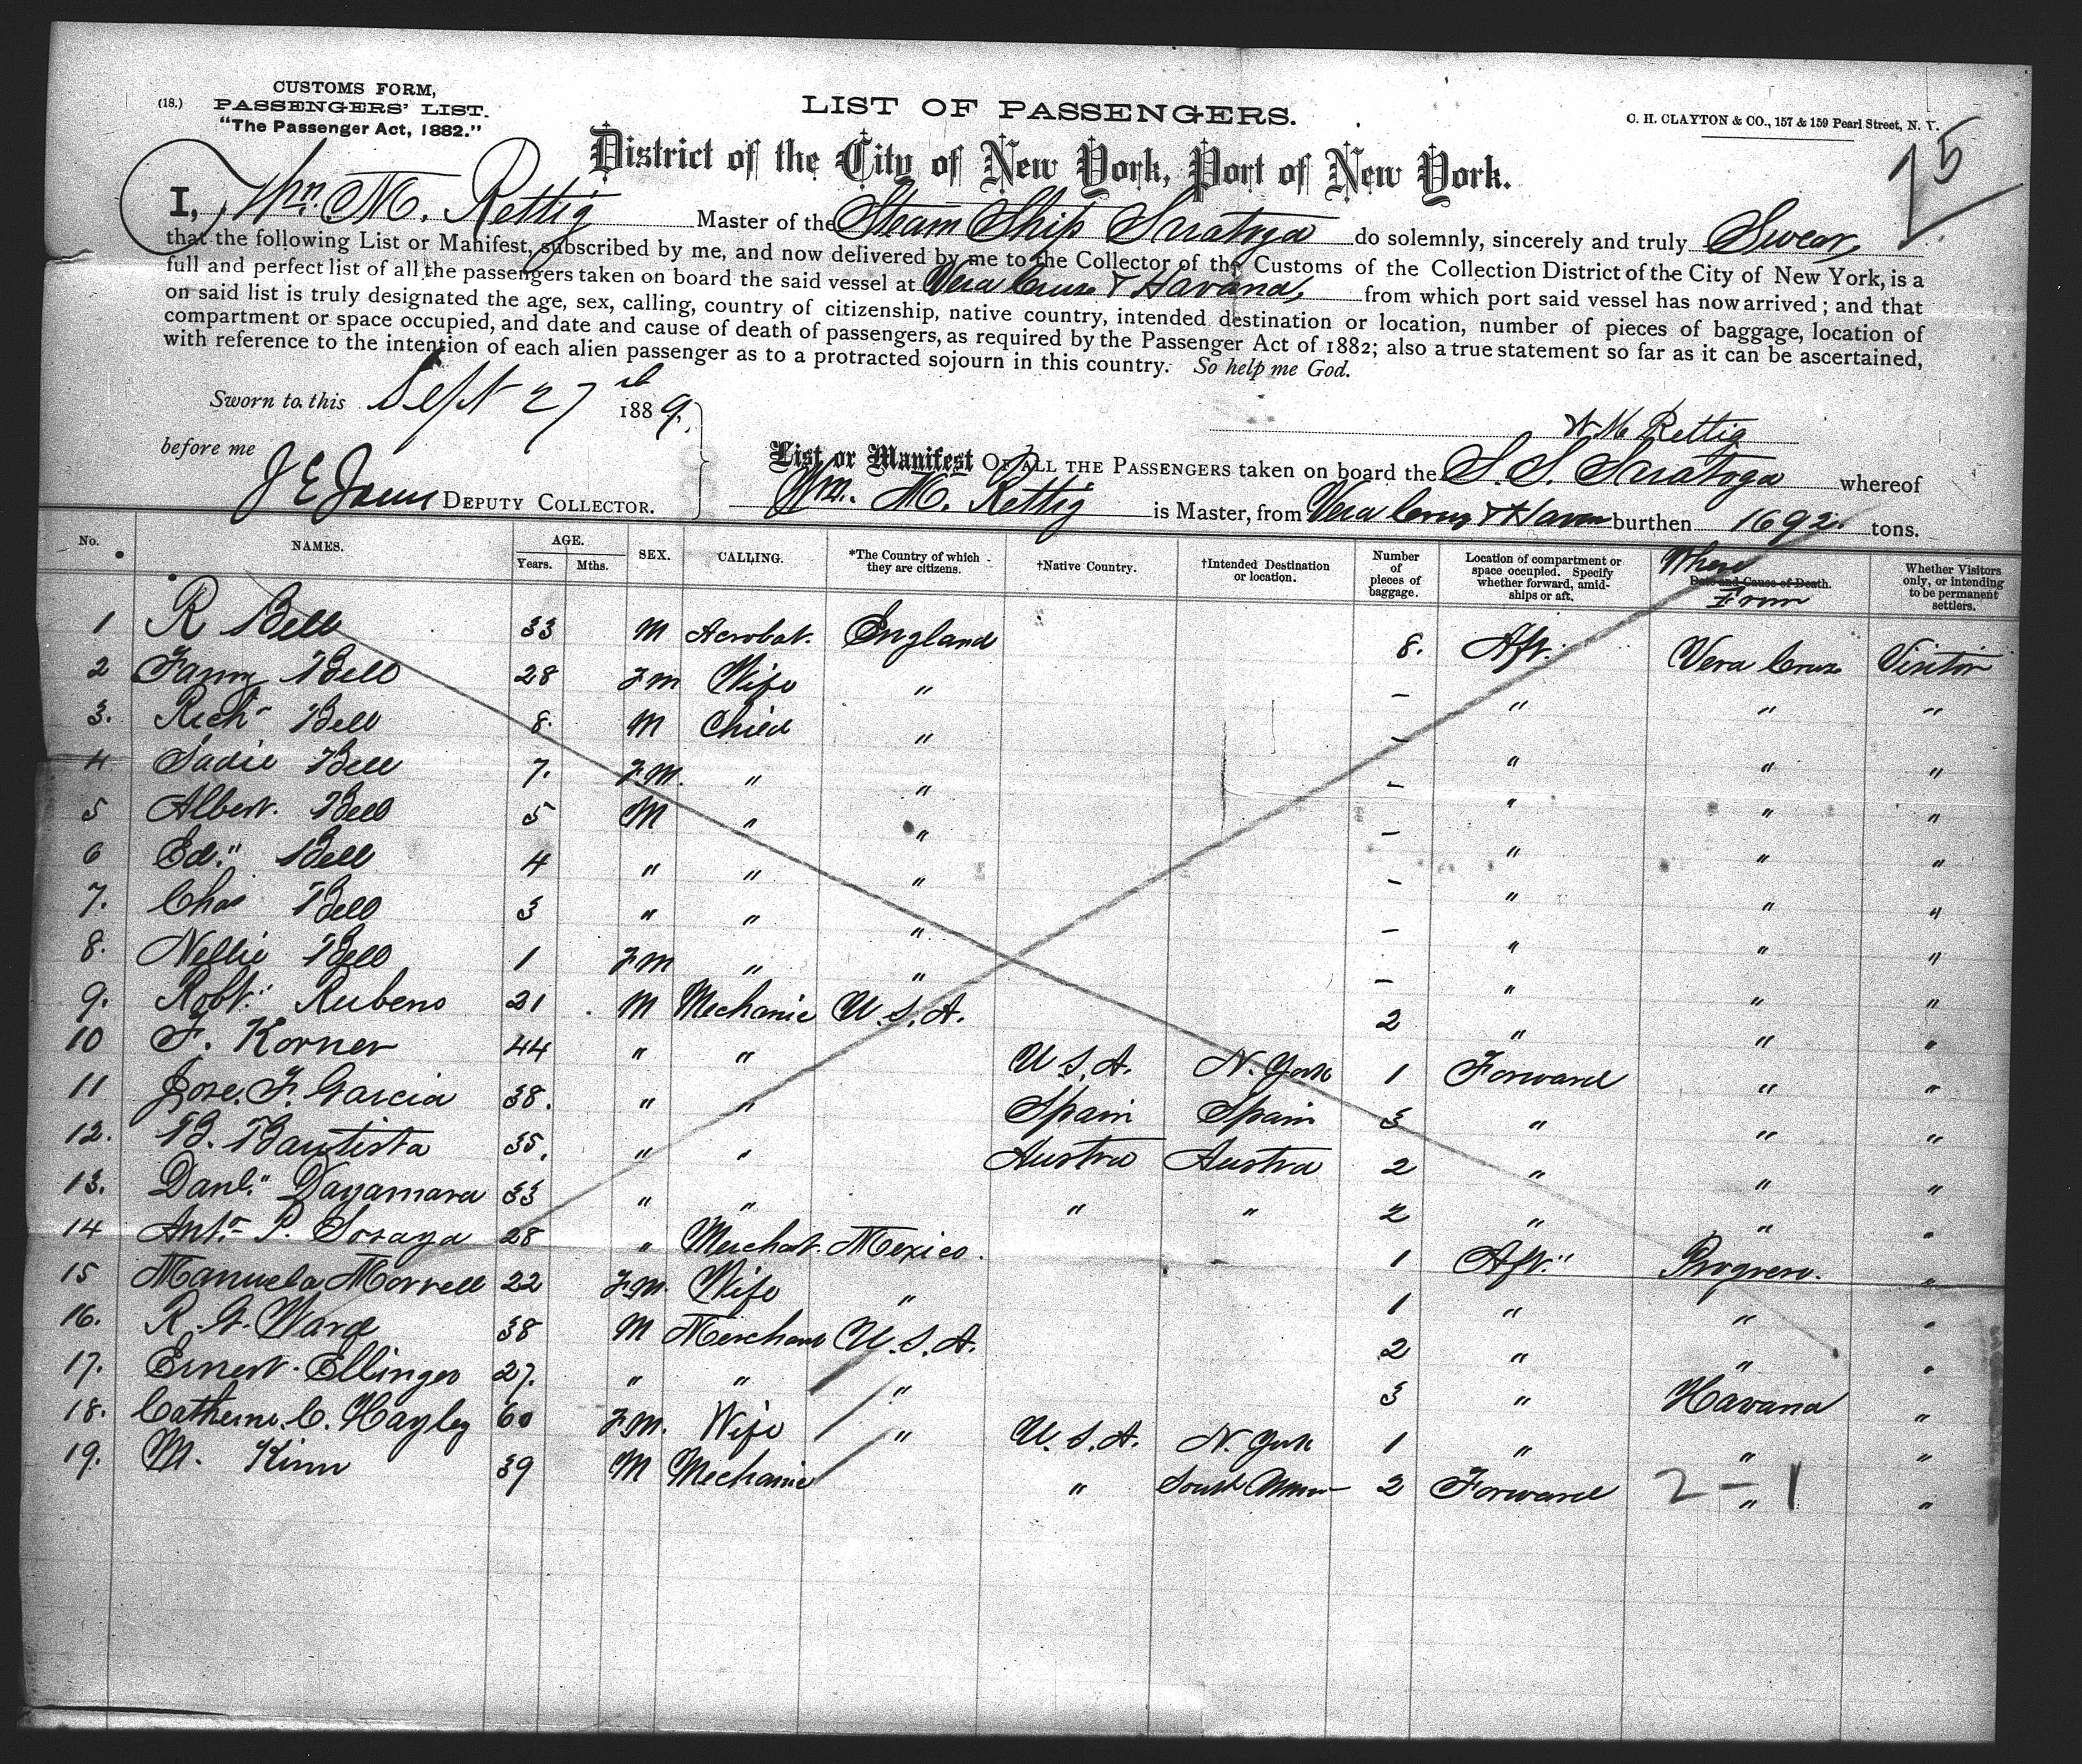 (18.) CUSTOMS FORM,
PASSENGERS' LIST.
"The Passenger Act, 1882."
LIST OF PASSENGERS.
C. H. CLAYTON & CO., 157 & 159 Pearl Street, N. Y.
District of the City of New York, Port of New York.
I, Wm. M. Rettig Master of the Steam Ship Saratoga do solemnly, sincerely and truly Swear,
that the following List or Manifest, subscribed by me, and now delivered by me to the Collector of the Customs of the Collection District of the City of New York, is a
full and perfect list of all the passengers taken on board the said vessel at Vera Cruz & Havana, from which port said vessel has now arrived; and that
on said list is truly designated the age, sex, calling, country of citizenship, native country, intended destination or location, number of pieces of baggage, location of
compartment or space occupied, and date and cause of death of passengers, as required by the Passenger Act of 1882; also a true statement so far as it can be ascertained,
with reference to the intention of each alien passenger as to a protracted sojourn in this country. So help me God.
Sworn to this Sept 27th 1889.
W M Rettig
before me
DEPUTY COLLECTOR.
List or Manifest OF ALL THE PASSENGERS taken on board the S. S. Saratoga whereof
Wm. M. Rettig is Master, from Vera Cruz & Havana burthen 1692. tons.
No. NAMES. AGE. Years. Mths. SEX. CALLING. *The Country of which they are citizens. †Native Country. †Intended Destination or location. Number of pieces of baggage. Location of compartment or space occupied. Specify whether forward, amidships or aft. Date and Cause of Death. Where From Whether Visitors only, or intending to be permanent settlers.
1 R Bell 33 M Acrobat. England 8. Aft. Vera Cruz Visitor
2 Fanny Bell 28 Fm Wife " - " " "
3. Richd Bell 8. M Child " - " " "
4 Sadie Bell 7. F.M. " " - " " "
5 Albert. Bell 5 M " " - " " "
6 Ed." Bell 4 " " " - " " "
7. Chas Bell 3 " " " - " " "
8. Nellie Bell 1 Fm " " - " " "
9. Robt." Rubens 21 M Mechanic U.S.A. 2 " " "
10 F. Korner 44 " " U.S.A. N. York 1 Forward " "
11 Jose. F. Garcia 38. " " Spain Spain 3 " " "
12. B. Bautista 35. " " Austra Austra 2 " " "
13. Danl." Dayamara 33 " " " " 2 " " "
14 Anto P. Sosaya 28 " Merchat. Mexico. 1 Aft." Progreso. "
15 Manuela Morrell 22 F.M. Wife " 1 " " "
16. R. G. Ward 38 M Merchant U.S.A. 2 " " "
17. Ernest. Ellinger 27. " " " 3 " Havana "
18. Catherine. C. Hagley 60 F.M. Wife " U.S.A. N. York 1 " " "
19. M. Kinn 39 M Mechanic " 2 Forward " "
2 - 1